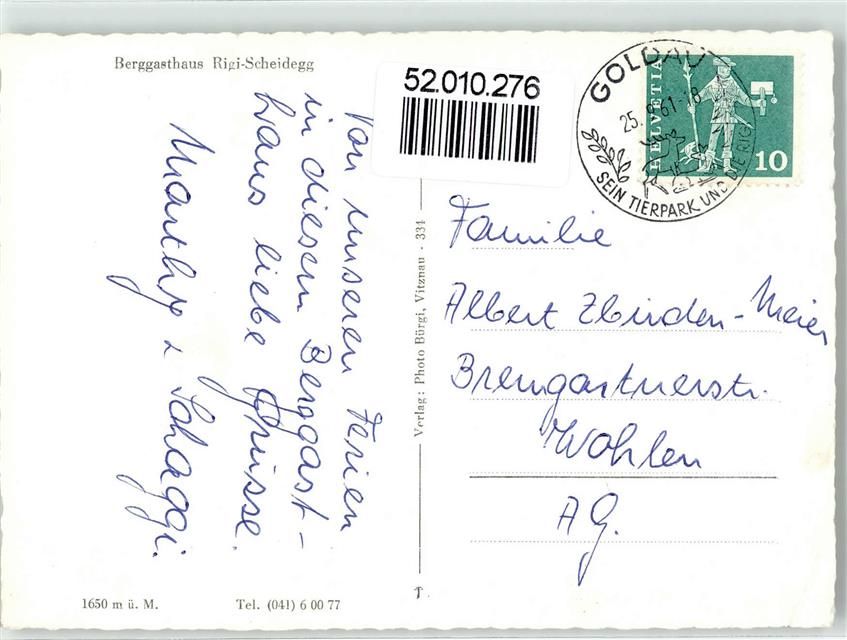 Berggasthaus Rigi-Scheidegg
52.010.276
GOLDAU
25. 61-18
SEIN TIERPARK UND DIE RIGI
HELVETIA
10
Von unseren Ferien
in diesem Berggast-
haus liebe Grüsse.
Marthy & Schaggi.
Verlag: Photo Bürgi, Vitznau - 334
Familie
Albert Zbinden-Meier
Bremgartnerstr.
Wohlen
AG.
1650 m ü. M.
Tel. (041) 6 00 77